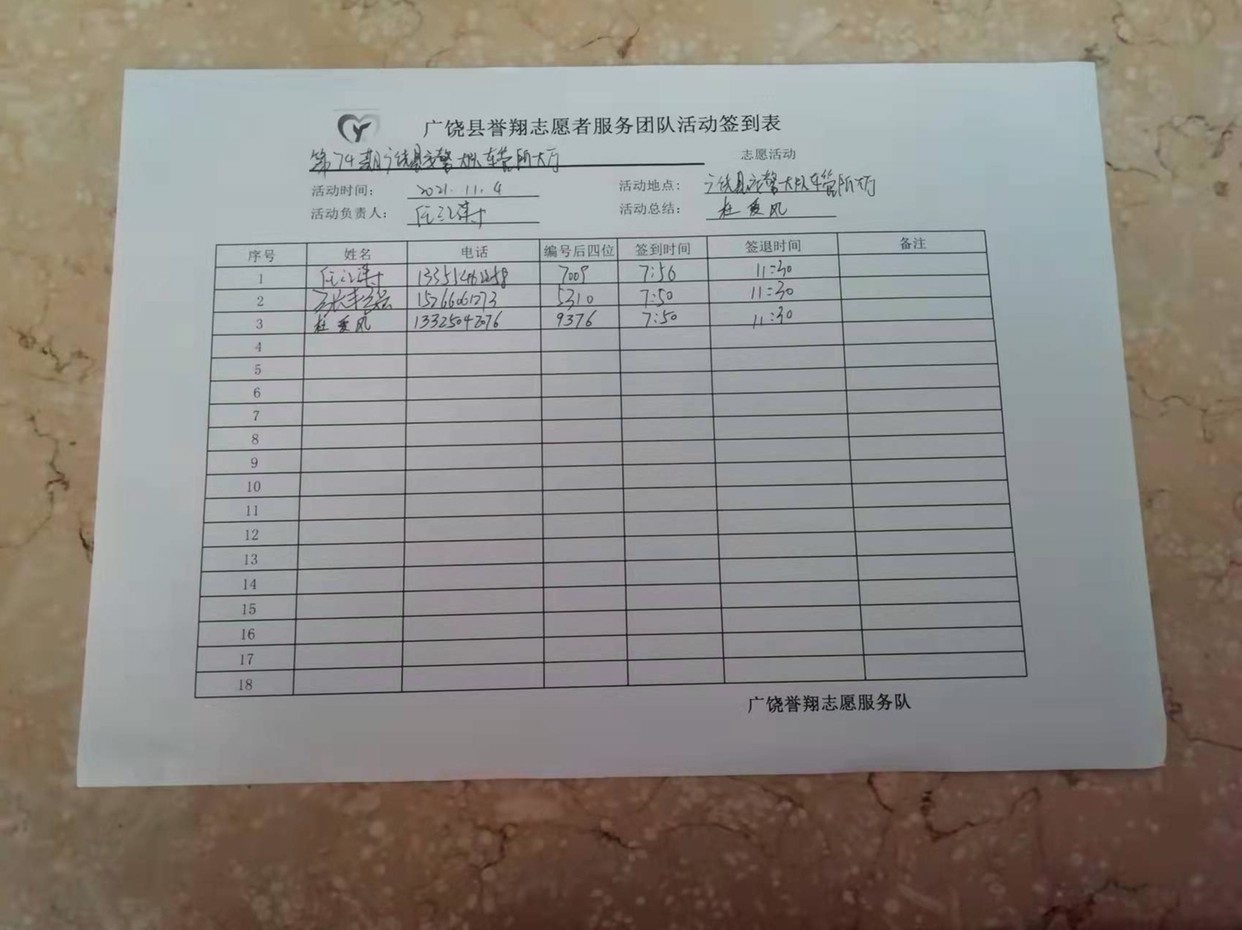 广饶县誉翔志愿者服务团队活动签到表
第74期广饶县交警大队车管所大厅 志愿活动
活动时间: 2021.11.4 活动地点: 广饶县交警大队车管所大厅
活动负责人: 活动总结: 杜爱凤
序号 姓名 电话 编号后四位 签到时间 签退时间 备注
1 7009 7:56 11:30
2 15266061273 5310 7:50 11:30
3 杜爱凤 13325042076 9376 7:50 11:30
4
5
6
7
8
9
10
11
12
13
14
15
16
17
18
广饶誉翔志愿服务队